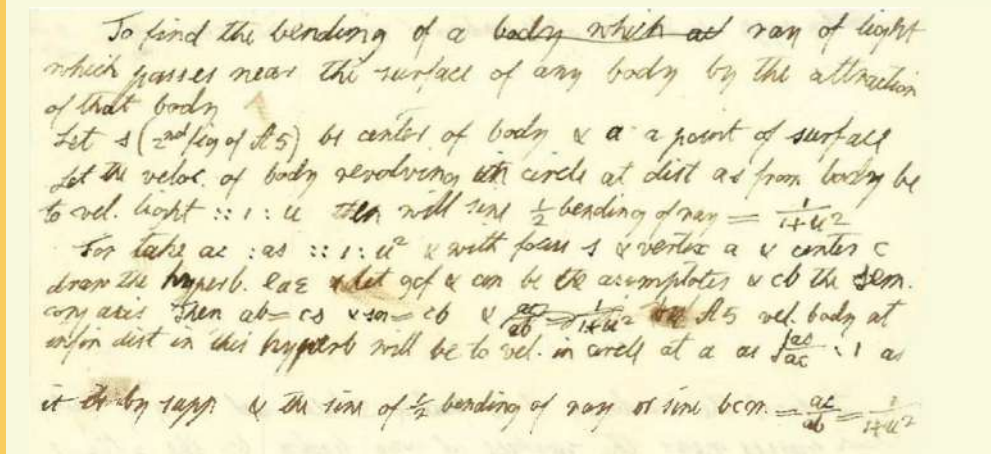 To find the bending of a body which at ray of light
which passes near the surface of any body by the attraction
of that body
Let s (2nd fig of A5) be center of body & a a point of surface
Let the veloc. of body revolving in circle at dist as from body be
to vel. light :: 1 : u then will sine ½ bending of ray = 1/1+u²
For take ac : as :: 1 : u² & with focus s & vertex a & center c
draw the hyperb. & let be the asimptotes & cb the sem.
conj axis Then ab = cs & = cb & ac/ab = 1/1+u² A5 vel. body at
infin dist in this hyperb will be to vel. in circle at a as √as/√ac : 1 as
it by supp. & the sine of ½ bending of ray or sine bcm. = ac/ab = 1/1+u²